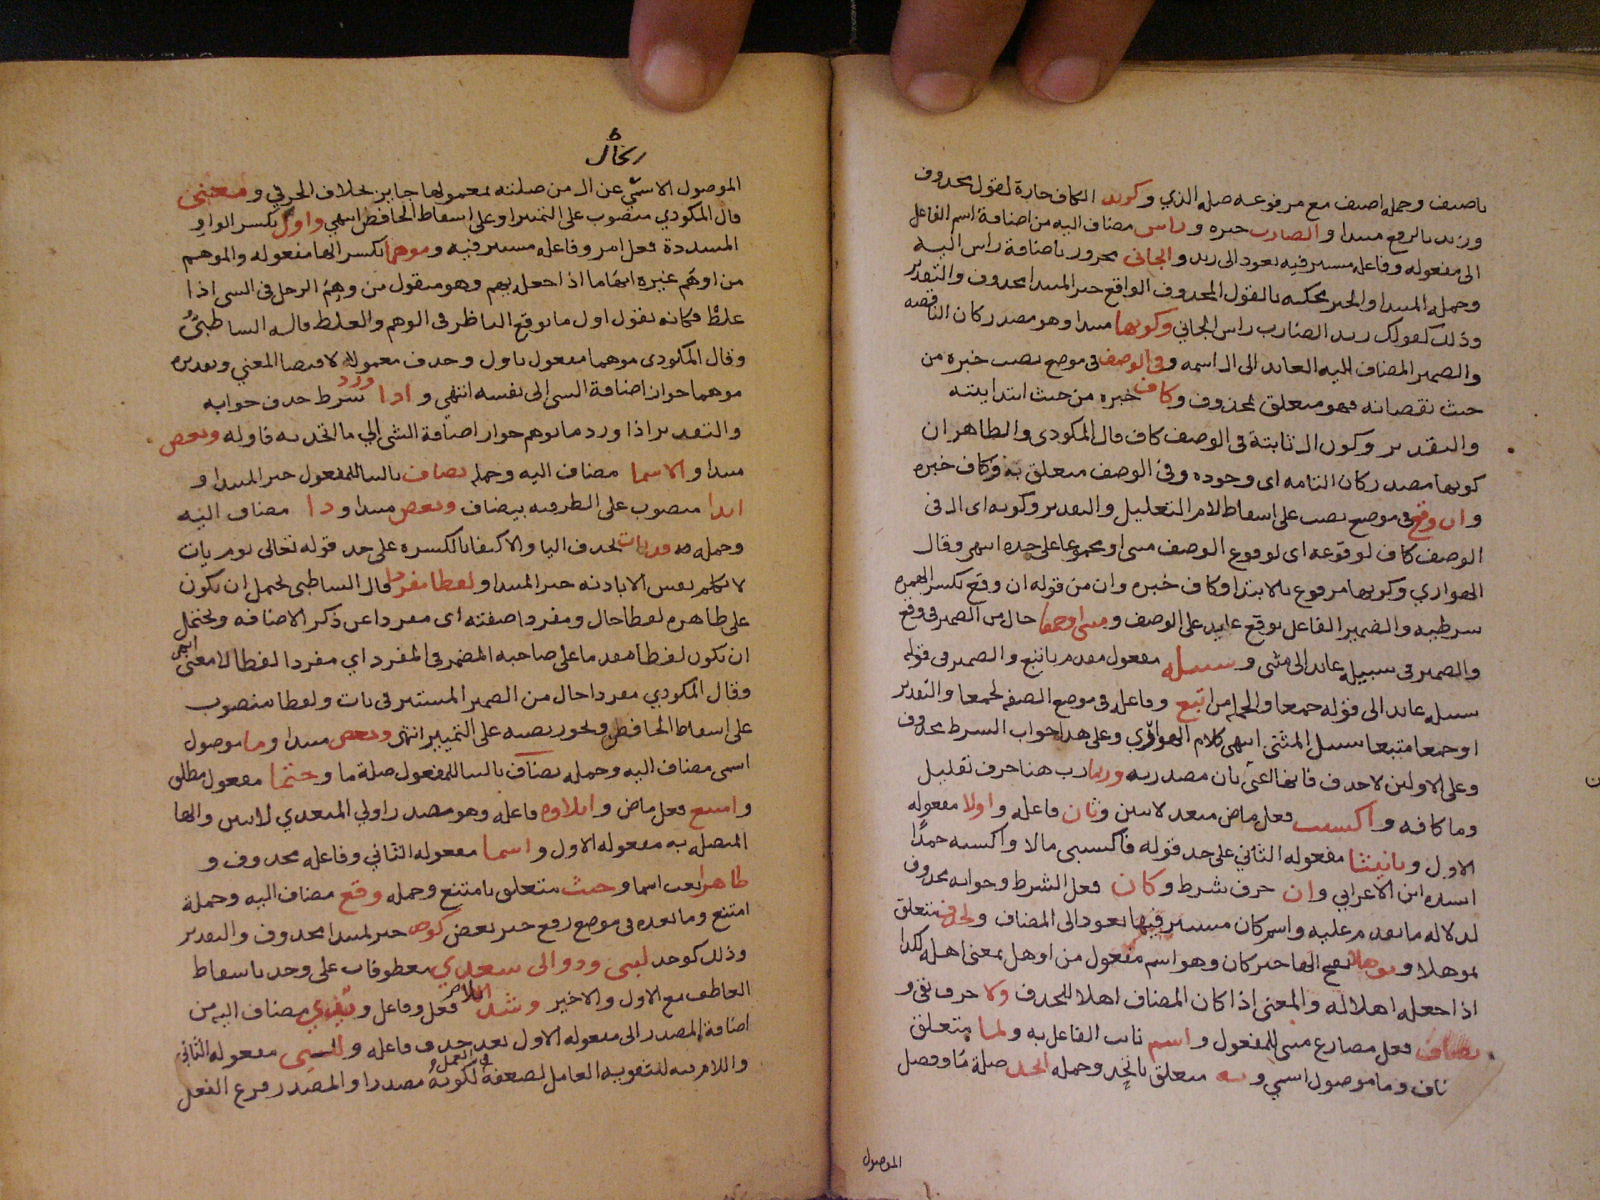 باضيف وجملة اضيف مع مرفوعه صلة الذي وكزيد الكاف جارة لقول محذوف
وزيد بالرفع مبتدا والضارب خبره وراس مضاف اليه من اضافة اسم الفاعل
الى مفعوله وفاعله مستتر فيه يعود الى زيد والجاني مجرور باضافة راس اليه
وجملة المبتدا والخبر محكية بالقول المحذوف الواقع خبر المبتدا محذوف والتقدير
وذلك كقولك زيد الضارب راس الجاني وكونها مبتدا وهو مصدر كان الناقصة
والضمير المضاف اليه العايد الى ال اسمه وفي الوصف في موضع نصب خبره من
حيث نقصانه فهو متعلق بمحذوف وكاف خبره من حيث ابتدايته
والتقدير وكون ال ثابتة في الوصف كاف قال المكودي والظاهر ان
كونها مصدر كان التامة اى وجوده وفي الوصف متعلق به وكاف خبره
وان وقع في موضع نصب على اسقاط لام التعليل والتقدير وكونه اى ال في
الوصف كاف لوقوعه اى لوقوع الوصف مثنى او مجموعا على حده انتهى وقال
الهواري وكونها مرفوع بالابتدا وكاف خبره وان من قوله ان وقع بكسر الهمزة
شرطية والضمير الفاعل بوقع عايد على الوصف ومثنى او جمعا حال من الضمير في وقع
والضمير في سبيله عايد الى مثنى وسبيله مفعول مقدم باتبع والضمير في قوله
سبيله عايد الى قوله جمعا والجملة من اتبع وفاعله في موضع الصفة لجمعا والتقدير
او جمعا متبعا سبيل المثنى انتهى كلام الهواري وعلى هذا جواب الشرط محذوف
وعلى الاولين لا حذف بان مصدرية وربما رب هنا حرف تقليل
وما كافة واكسب فعل ماض متعد لاثنين وثان فاعله واولا مفعوله
الاول وتانيثا مفعوله الثاني على حد قوله فاكسبني مالا واكسبته حمدًا
انشده ابن الاعرابي وان حرف شرط وكان فعل الشرط وجوابه محذوف
لدلالة ما تقدم عليه واسم كان مستتر فيها يعود الى المضاف ولحذف متعلق
بموهلا وموهلا بفتح الها خبر كان وهو اسم مفعول من اوهل بمعنى اهله لكذا
اذا جعله اهلا له والمعنى اذا كان المضاف اهلا للحذف ولا حرف نفي و
يضاف فعل مضارع مبني للمفعول واسم نايب الفاعل به ولما متعلق
وما موصول اسمي وبه متعلق باتحد وجملة اتحد صلة ما وفصل
الموصول
الموصول الاسمي عن ال من صلته بمعمولها جايز بخلاف الحرفي ومعنى
قال المكودي منصوب على التمييز او على اسقاط الخافض انتهى واول بكسر الواو
المشددة فعل امر وفاعله مستتر فيه وموهما بكسر الها مفعوله والموهم
من اوهم غيره ايهاما اذا جعله يهم وهو منقول من وهم الرجل في الشي اذا
غلط فكانه يقول اول ما يوقع الناظر في الوهم والغلط قاله الشاطبي
وقال المكودي موهما مفعول باول وحذف معموله لاقتضا المعنى وتقديره
موهما جواز اضافة الشي الى نفسه انتهى واذا ورد شرط حذف جوابه
والتقدير اذا ورد ما يوهم جواز اضافة الشي الى ما اتحد به فاوله وبعض
مبتدا والاسما مضاف اليه وجملة يضاف بالبنا للمفعول خبر المبتدا و
ابدا منصوب على الظرفية بيضاف وبعض مبتدا وذا مضاف اليه
وجملة قد يات بحذف اليا والاكتفا بالكسرة على حد قوله تعالى يوم يات
لا تكلم نفس الا باذنه خبر المبتدا ولفظا مفردا قال الشاطبي يحتمل ان يكون
على ظاهره لفظا حال ومفردا صفته اى مفردا عن ذكر الاضافة ويحتمل
ان يكون لفظا مقدما على صاحبه المضمر في المفرد اي مفردا لفظا لا معنى انتهى
وقال المكودي مفردا حال من الضمير المستتر في يات ولفظا منصوب
على اسقاط الخافض ويجوز نصبه على التمييز انتهى وبعض مبتدا وما موصول
اسمي مضاف اليه وجملة يضاف بالبنا للمفعول صلة ما وحتما مفعول مطلق
وامتنع فعل ماض وايلاوه فاعله وهو مصدر اولي المتعدي لاثنين والها
المتصلة به مفعوله الاول واسما مفعوله الثاني وفاعله محذوف و
ظاهرا نعت اسما وحيث متعلق بامتنع وجملة وقع مضاف اليه وجملة
امتنع وما بعده في موضع رفع خبر بعض كوحد خبر لمبتدا محذوف والتقدير
وذلك كوحد لبي ودوالى سعدي معطوفات على وحد باسقاط
العاطف مع الاول والاخير وشذ ايلا فعل وفاعل ويدي مضاف اليه من
اضافة المصدر الى مفعوله الاول بعد حذف فاعله وللبي مفعوله الثاني
واللام فيه لتقوية العامل لضعفه في العمل لكونه مصدرا والمصدر فرع الفعل